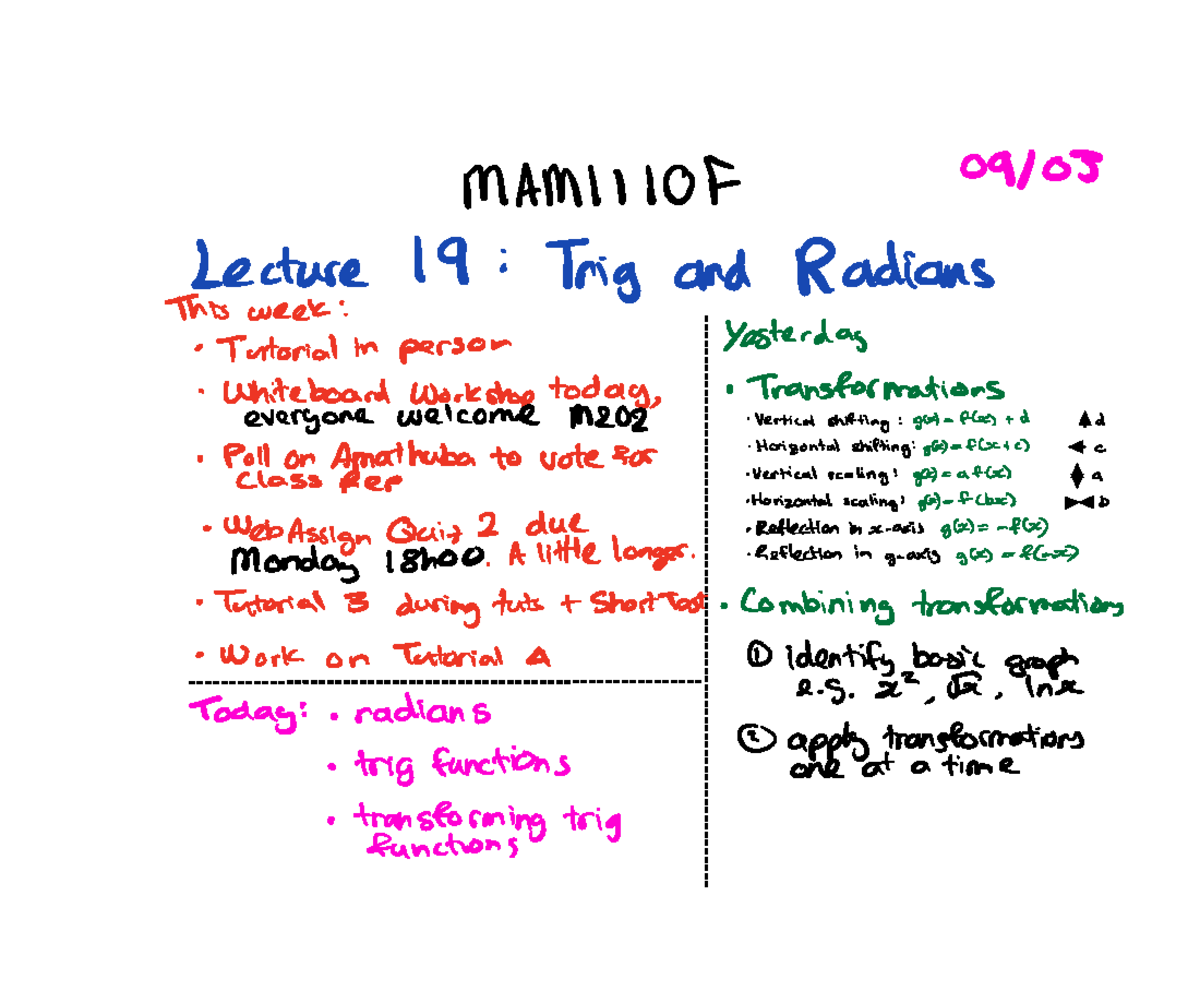 MAM1110F
09/03
Lecture 19: Trig and Radians
This week:
• Tutorial in person
• Whiteboard Workshop today,
everyone welcome M202
• Poll on Amathuba to vote for
Class Rep
• WebAssign Quiz 2 due
Monday 18h00. A little longer.
• Tutorial 3 during tuts + Short Test
• Work on Tutorial A
Today: • radians
• trig functions
• transforming trig
functions
Yesterday
• Transformations
• Vertical shifting: g(x) = f(x) + d ▲ d
• Horizontal shifting: g(x) = f(x+c) ◄ c
• Vertical scaling: g(x) = a f(x) ♦ a
• Horizontal scaling: g(x) = f(bx) ►◄ b
• Reflection in x-axis g(x) = -f(x)
• Reflection in y-axis g(x) = f(-x)
• Combining transformations
① identify basic graph
e.g. x², √x, ln x
② apply transformations
one at a time